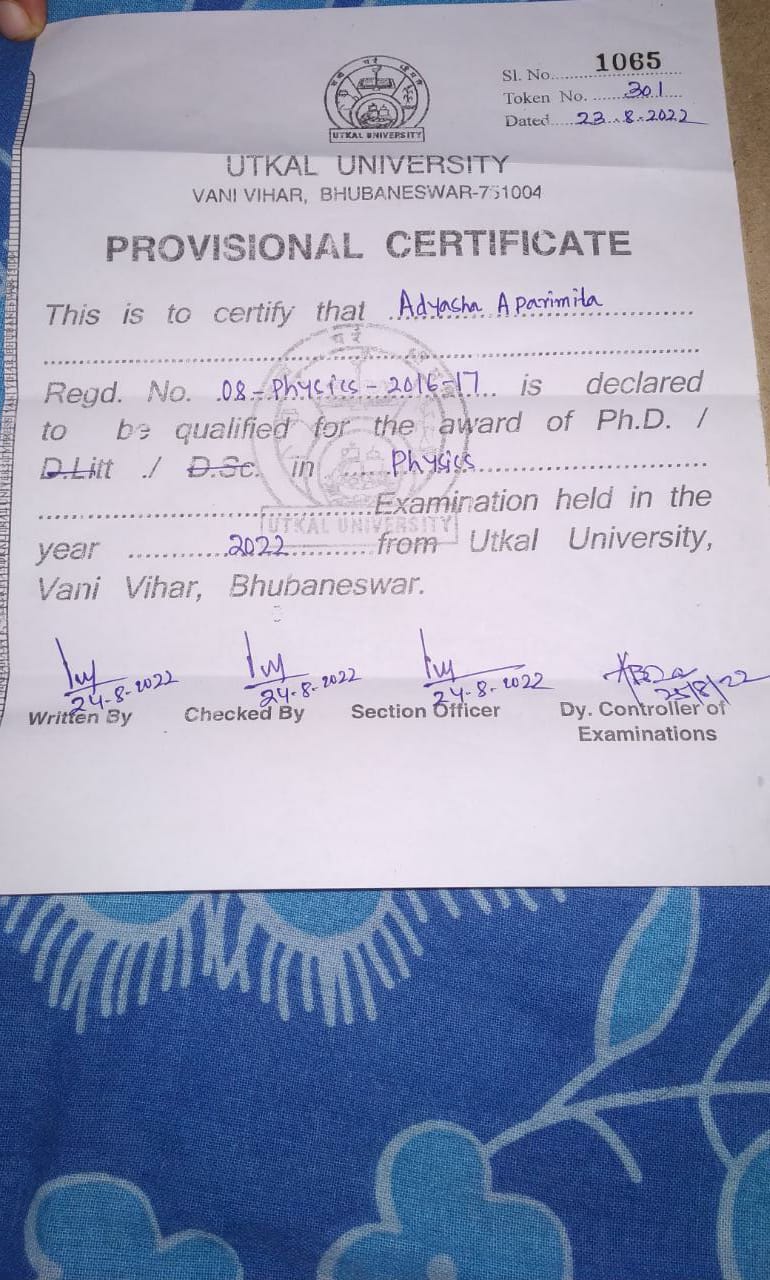 UTKAL UNIVERSITY
Sl. No. 1065
Token No. 301
Dated 23.8.2022
UTKAL UNIVERSITY
VANI VIHAR, BHUBANESWAR-751004
PROVISIONAL CERTIFICATE
This is to certify that Adyasha Aparimita
Regd. No. 08-Physics-2016-17 is declared
to be qualified for the award of Ph.D. /
D.Litt / D.Sc. in Physics
Examination held in the
UTKAL UNIVERSITY
year 2022 from Utkal University,
Vani Vihar, Bhubaneswar.
24-8-2022 24-8-2022 24-8-2022 25/8/22
Written By Checked By Section Officer Dy. Controller of
Examinations